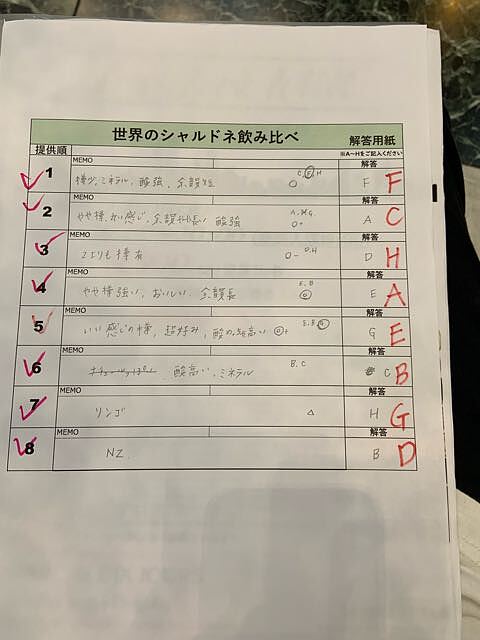 世界のシャルドネ飲み比べ 解答用紙
提供順 ※A~Hをご記入ください
MEMO 解答
1 樽少、ミネラル、酸強、余韻短 C, F, H ○ F F
MEMO 解答
2 やや樽、いい感じ、余韻やや長い 酸強 A, H, G ○+ A C
MEMO 解答
3 2よりも樽有 ○- D, H D H
MEMO 解答
4 やや樽強い、おいしい 余韻長 E, B ◎ E A
MEMO 解答
5 いい感じの樽、超好み、酸 高い ◎+ E, B, G G E
MEMO 解答
6 酸高い、ミネラル B, C C B
MEMO 解答
7 リンゴ △ H G
MEMO 解答
8 NZ. B D